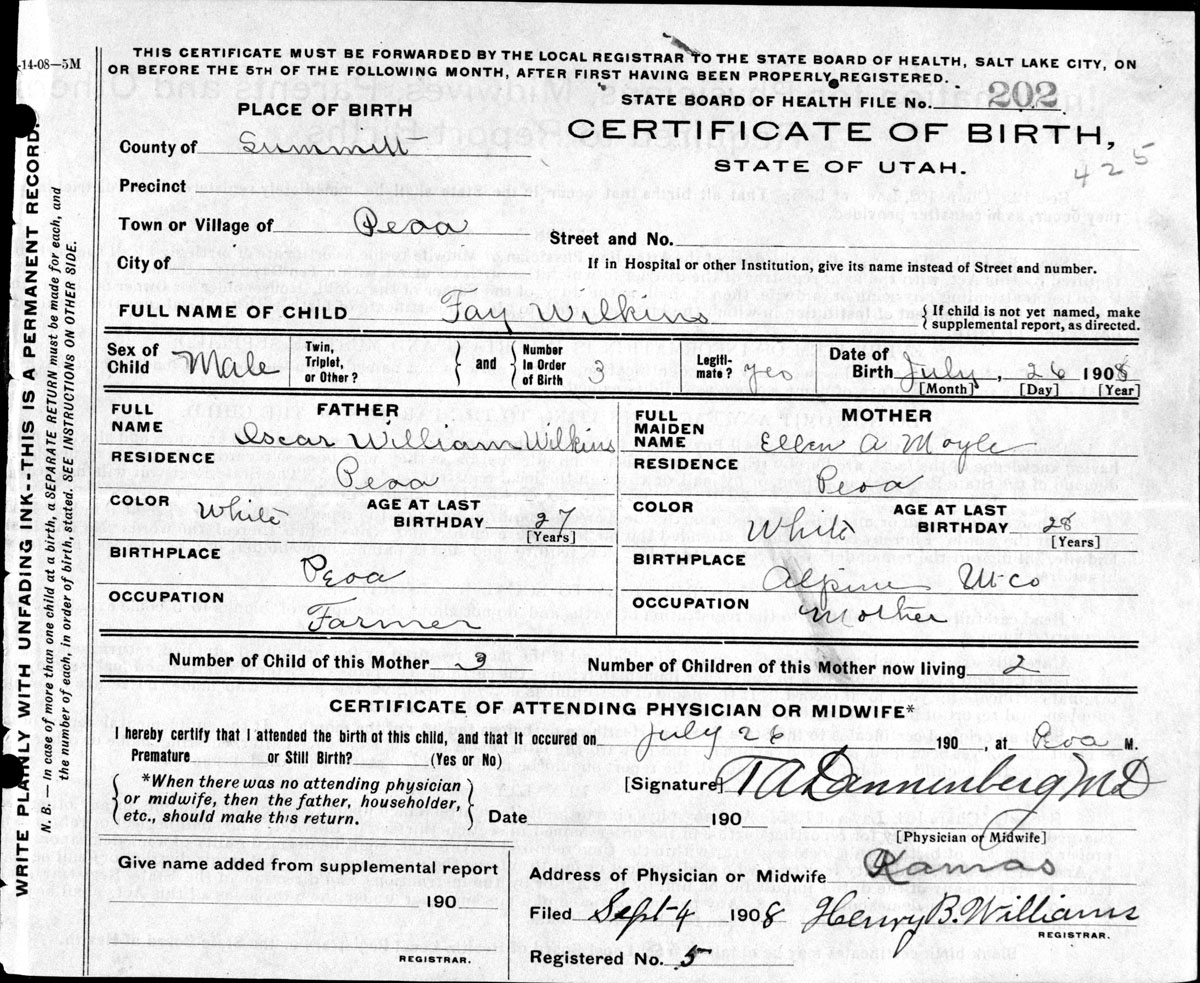 14-08—5M
THIS CERTIFICATE MUST BE FORWARDED BY THE LOCAL REGISTRAR TO THE STATE BOARD OF HEALTH, SALT LAKE CITY, ON
OR BEFORE THE 5TH OF THE FOLLOWING MONTH, AFTER FIRST HAVING BEEN PROPERLY REGISTERED.
STATE BOARD OF HEALTH FILE No. 202
PLACE OF BIRTH
CERTIFICATE OF BIRTH,
STATE OF UTAH.
425
County of Summitt
Precinct
Town or Village of Peoa
Street and No.
City of
If in Hospital or other Institution, give its name instead of Street and number.
FULL NAME OF CHILD Fay Wilkins { If child is not yet named, make
supplemental report, as directed.
Sex of Child Male Twin, Triplet, or Other? } and { Number in Order of Birth 3 Legiti- mate? yes Date of Birth July, 26 1908
[Month] [Day] [Year]
FATHER
FULL NAME Oscar William Wilkins
RESIDENCE Peoa
COLOR White AGE AT LAST BIRTHDAY 27
[Years]
BIRTHPLACE Peoa
OCCUPATION Farmer
MOTHER
FULL MAIDEN NAME Ellen A Moyle
RESIDENCE Peoa
COLOR White AGE AT LAST BIRTHDAY 28
[Years]
BIRTHPLACE Alpine Ut Co
OCCUPATION Mother
Number of Child of this Mother 3 Number of Children of this Mother now living 2
CERTIFICATE OF ATTENDING PHYSICIAN OR MIDWIFE*
I hereby certify that I attended the birth of this child, and that it occured on July 26 190 , at Peoa M.
Premature or Still Birth? (Yes or No)
{ *When there was no attending physician
or midwife, then the father, householder,
etc., should make this return. }
[Signature] T A Dannenberg MD
Date 190
[Physician or Midwife]
Give name added from supplemental report
190
REGISTRAR.
Address of Physician or Midwife Kamas
Filed Sept 4 1908 Henry B. Williams
REGISTRAR.
Registered No. 5
WRITE PLAINLY WITH UNFADING INK---THIS IS A PERMANENT RECORD.
N. B. — In case of more than one child at a birth, a SEPARATE RETURN must be made for each, and
the number of each, in order of birth, stated. SEE INSTRUCTIONS ON OTHER SIDE.